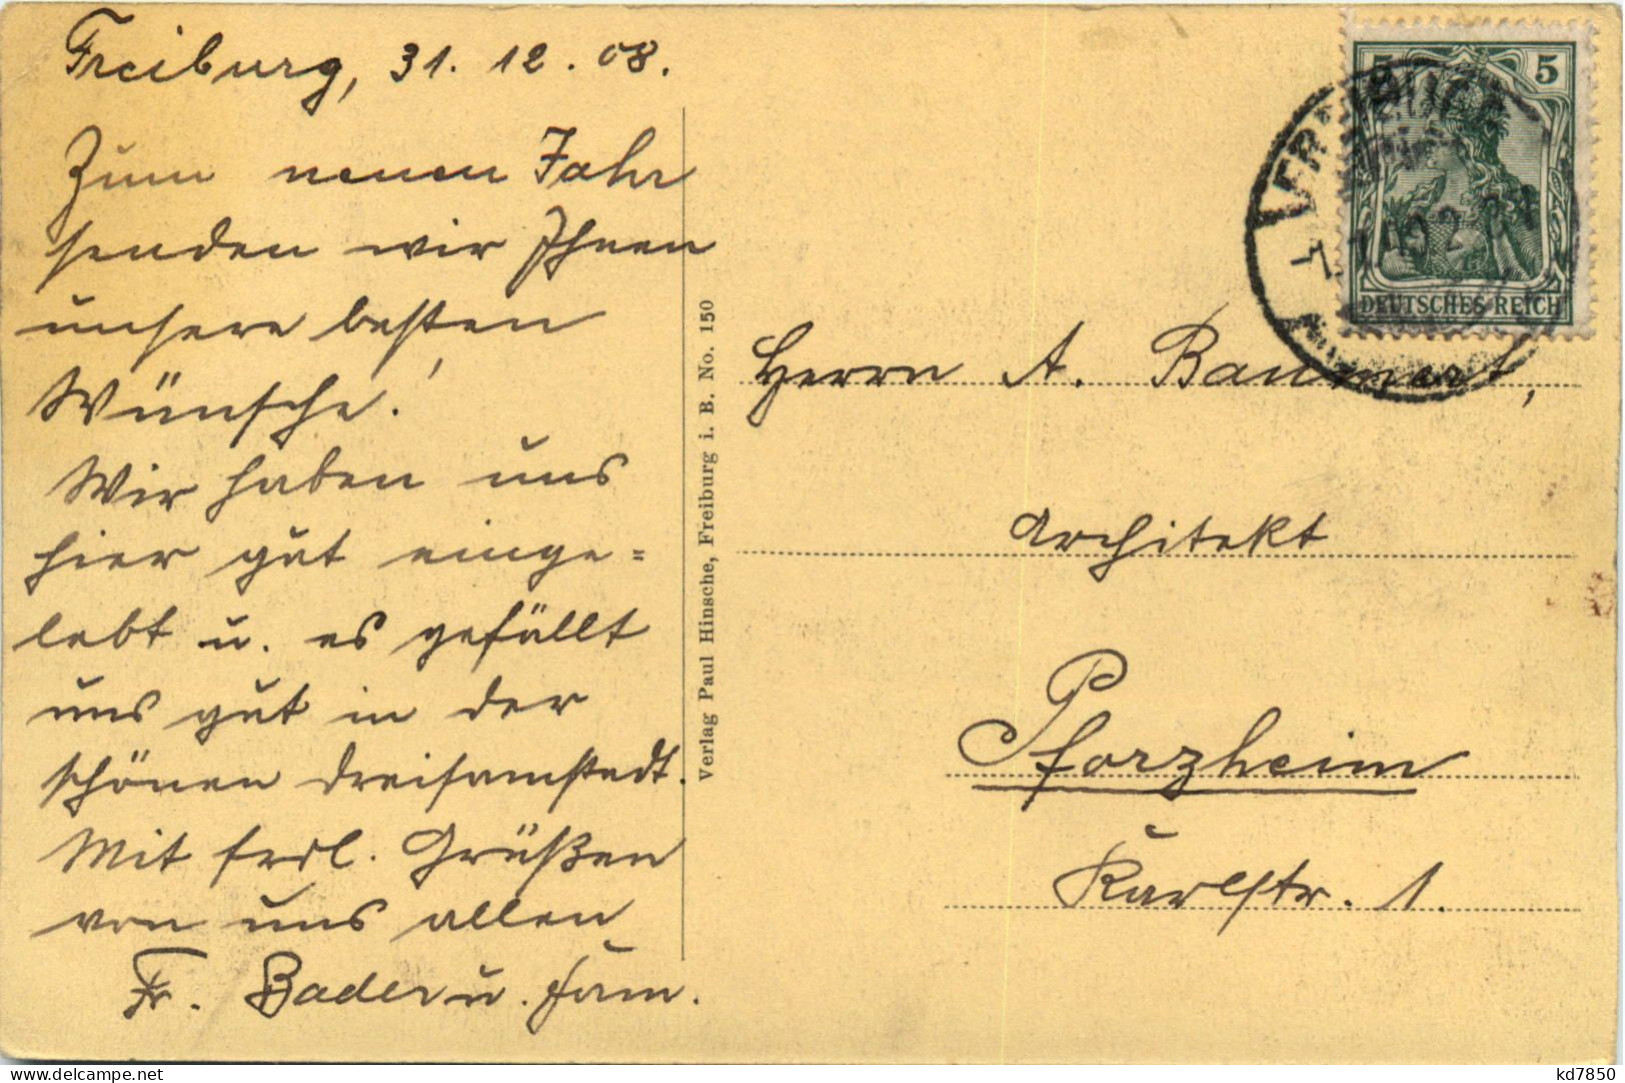 Freiburg, 31. 12. 08.
Zum neuen Jahr
senden wir Ihnen
unsere besten
Wünsche!
Wir haben uns
hier gut einge=
lebt u. es gefällt
uns gut in der
schönen Dreisamstadt.
Mit frdl. Grüßen
von uns allen
Fr. Bader u. Fam.
Verlag Paul Hinsche, Freiburg i. B. No. 150
5 5
DEUTSCHES REICH
Herrn A. Baumert,
Architekt
Pforzheim
Karlstr. 1.
www.delcampe.net
kd7850